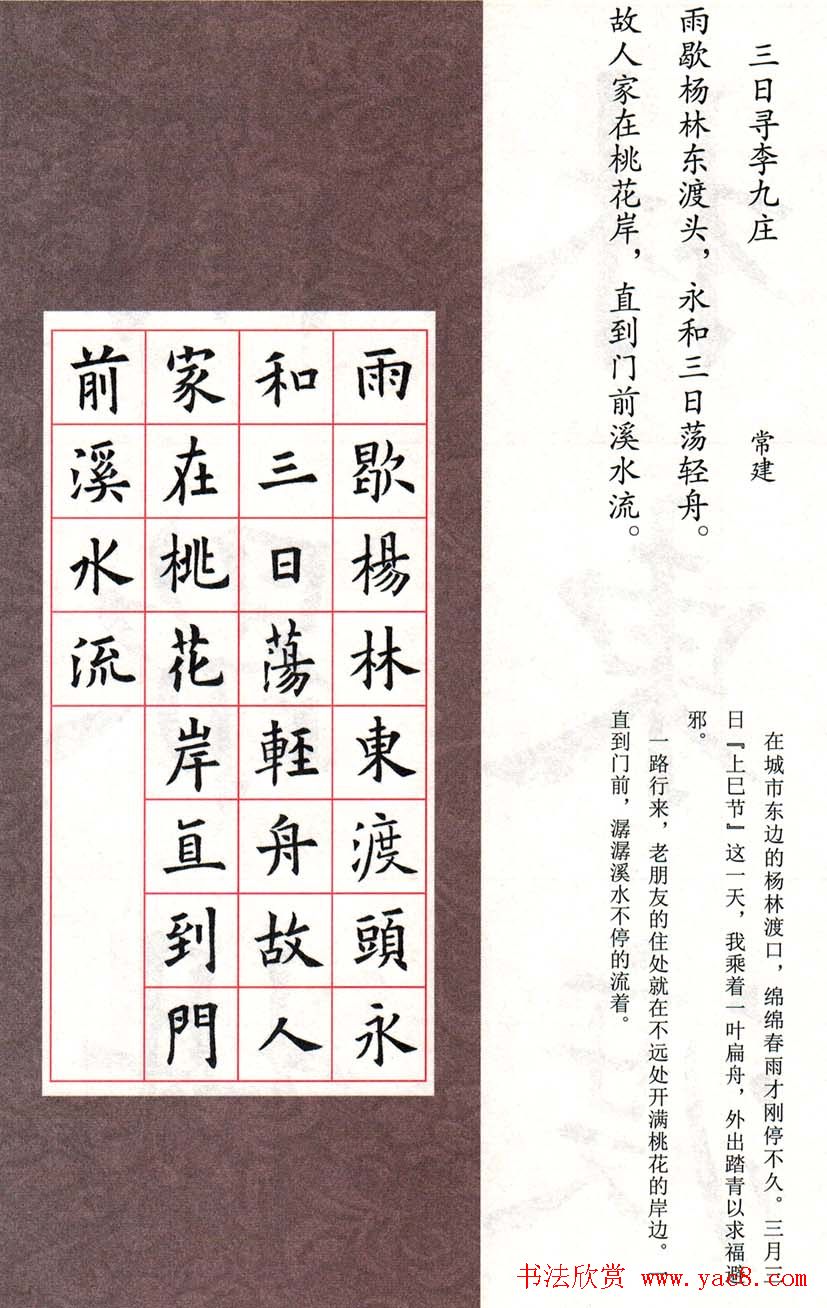 三日寻李九庄
常建
雨歇杨林东渡头，永和三日荡轻舟。
故人家在桃花岸，直到门前溪水流。
在城市东边的杨林渡口，绵绵春雨才刚停不久。三月三
日『上巳节』这一天，我乘着一叶扁舟，外出踏青以求福避
邪。
一路行来，老朋友的住处就在不远处开满桃花的岸边。一
直到门前，潺潺溪水不停的流着。
雨歇楊林東渡頭永
和三日蕩輕舟故人
家在桃花岸直到門
前溪水流
书法欣赏 www.yac8.com